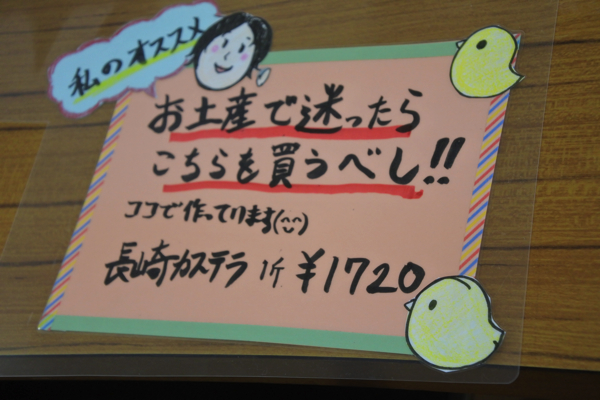 私のオススメ
お土産で迷ったら
こちらを買うべし!!
ココで作ってります(^^)
長崎カステラ 1斤 ¥1720